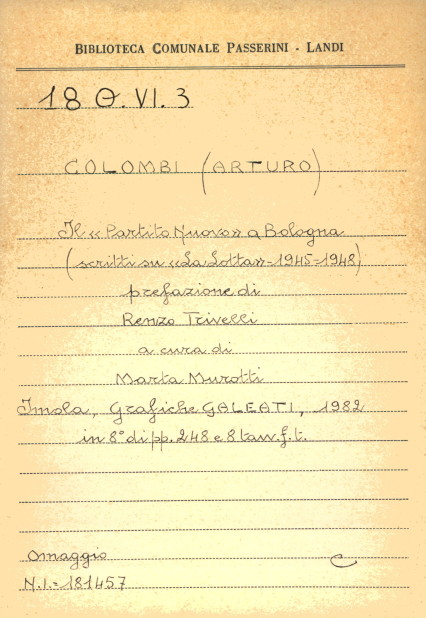 BIBLIOTECA COMUNALE PASSERINI - LANDI
18 O. VI. 3
COLOMBI (ARTURO)
Il «Partito Nuovo» a Bologna
(scritti su «La Lotta» - 1945-1948)
prefazione di
Renzo Trivelli
a cura di
Marta Murotti
Imola, Grafiche GALEATI, 1982
in 8° di pp. 248 e 8 tav. f. t.
Omaggio C
N. I. = 181457